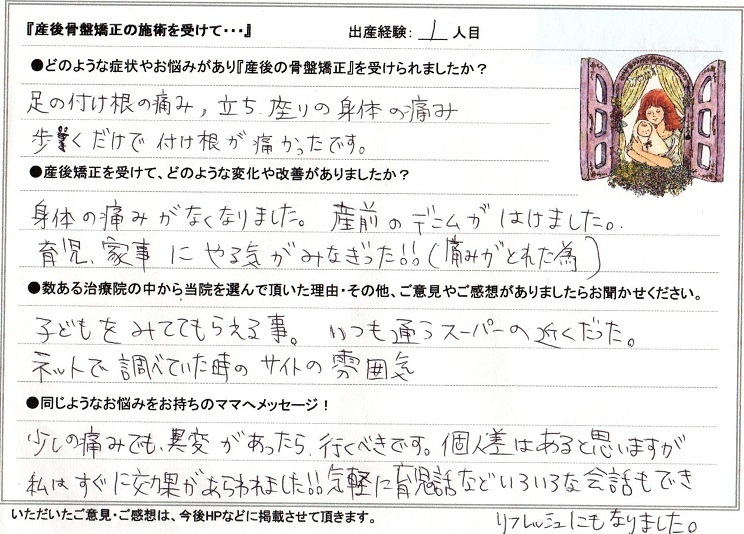 『産後骨盤矯正の施術を受けて・・・』 出産経験: 1 人目
●どのような症状やお悩みがあり『産後の骨盤矯正』を受けられましたか？
足の付け根の痛み, 立ち 座りの身体の痛み
歩くだけで付け根が痛かったです。
●産後矯正を受けて、どのような変化や改善がありましたか？
身体の痛みがなくなりました。 産前のデニムがはけました。
育児、家事にやる気がみなぎった!!(痛みがとれた為)
●数ある治療院の中から当院を選んで頂いた理由・その他、ご意見やご感想がありましたらお聞かせください。
子どもをみててもらえる事。 いつも通うスーパーの近くだった。
ネットで調べていた時のサイトの雰囲気
●同じようなお悩みをお持ちのママへメッセージ！
少しの痛みでも、異変があったら、行くべきです。個人差はあると思いますが
私はすぐに効果があらわれました!!気軽に育児話などいろいろな会話もでき
リフレッシュにもなりました。
いただいたご意見・ご感想は、今後HPなどに掲載させて頂きます。